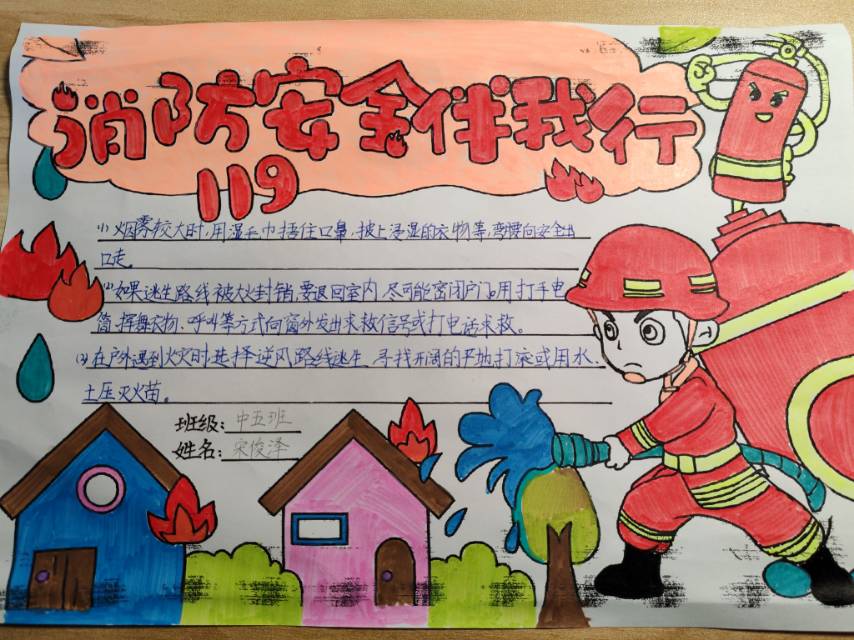 消防安全伴我行
119
(1) 烟雾较大时,用湿毛巾捂住口鼻,披上浸湿的衣物等,弯腰向安全出
口走。
(2) 如果逃生路线被火封锁,要退回室内,尽可能密闭户门。用打手电
筒、挥舞衣物、呼叫等方式向窗外发出求救信号或打电话求救。
(3) 在户外遇到火灾时选择逆风路线逃生 寻找开阔的平地打滚或用水、
土压灭火苗。
班级：中五班
姓名：宋俊泽